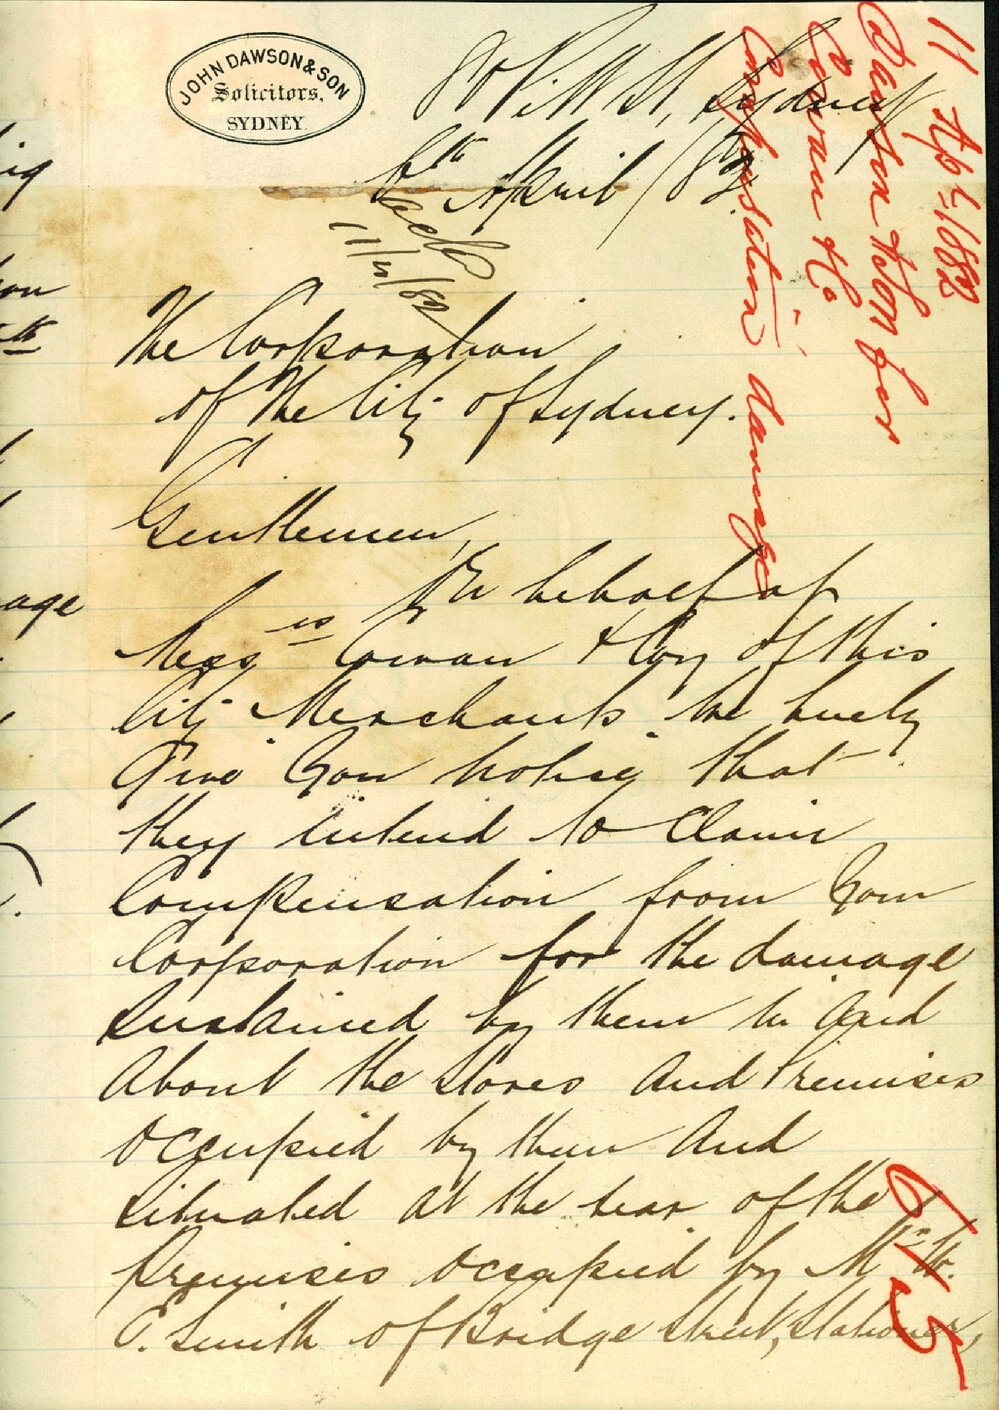 JOHN DAWSON & SON
Solicitors,
SYDNEY.
80 Pitt St, Sydney
6th April 1882
ack
11/4/82
The Corporation
of the City of Sydney.
Gentlemen,
On behalf of
Messrs Cowan & Coy of this
City Merchants we hereby
Give You Notice that
they intend to Claim
Compensation from Your
Corporation for the damage
Sustained by them in And
About the Stores And Premises
Occupied by them And
Situated at the rear of the
Premises Occupied by Mr W.
E. Smith of Bridge Street, Stationer,
11 Apl 1882
Dawson & Son for
Cowan & Co
Compensation damage
age